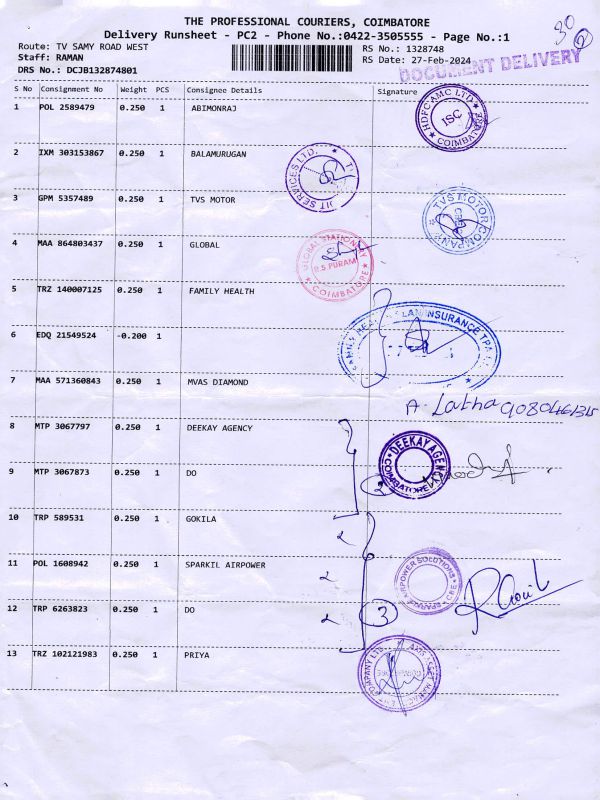 THE PROFESSIONAL COURIERS, COIMBATORE
Delivery Runsheet - PC2 - Phone No.:0422-3505555 - Page No.:1
Route: TV SAMY ROAD WEST
RS No.: 1328748
Staff: RAMAN
RS Date: 27-Feb-2024
DRS No.: DCJB132874801
DOCUMENT DELIVERY
30
2
S No Consignment No Weight PCS Consignee Details Signature
1 POL 2589479 0.250 1 ABIMONRAJ
HDFC AMC LTD ISC COIMBATORE
2 IXM 303153867 0.250 1 BALAMURUGAN
3 GPM 5357489 0.250 1 TVS MOTOR
TVS MOTOR COMPANY CBE
4 MAA 864803437 0.250 1 GLOBAL
GLOBAL STATIONERY R.S PURAM COIMBATORE
5 TRZ 140007125 0.250 1 FAMILY HEALTH
6 EDQ 21549524 -0.200 1
7 MAA 571360843 0.250 1 MVAS DIAMOND
A. Latha
8 MTP 3067797 0.250 1 DEEKAY AGENCY
DEEKAY AGENCY COIMBATORE
9 MTP 3067873 0.250 1 DO
2
10 TRP 589531 0.250 1 GOKILA
11 POL 1608942 0.250 1 SPARKIL AIRPOWER
12 TRP 6263823 0.250 1 DO
3
13 TRZ 102121983 0.250 1 PRIYA